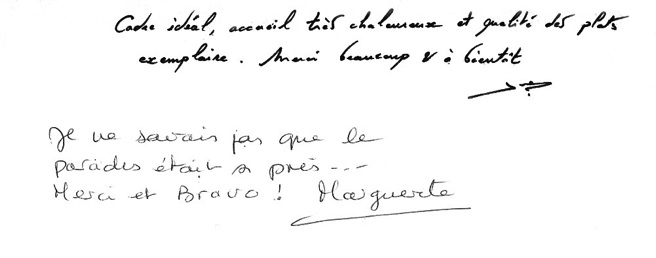 Cadre idéal, accueil très chaleureux et qualité des plats
exemplaire. Merci beaucoup & à bientôt
Je ne savais pas que le
paradis était si près ---
Merci et Bravo ! Marguerite